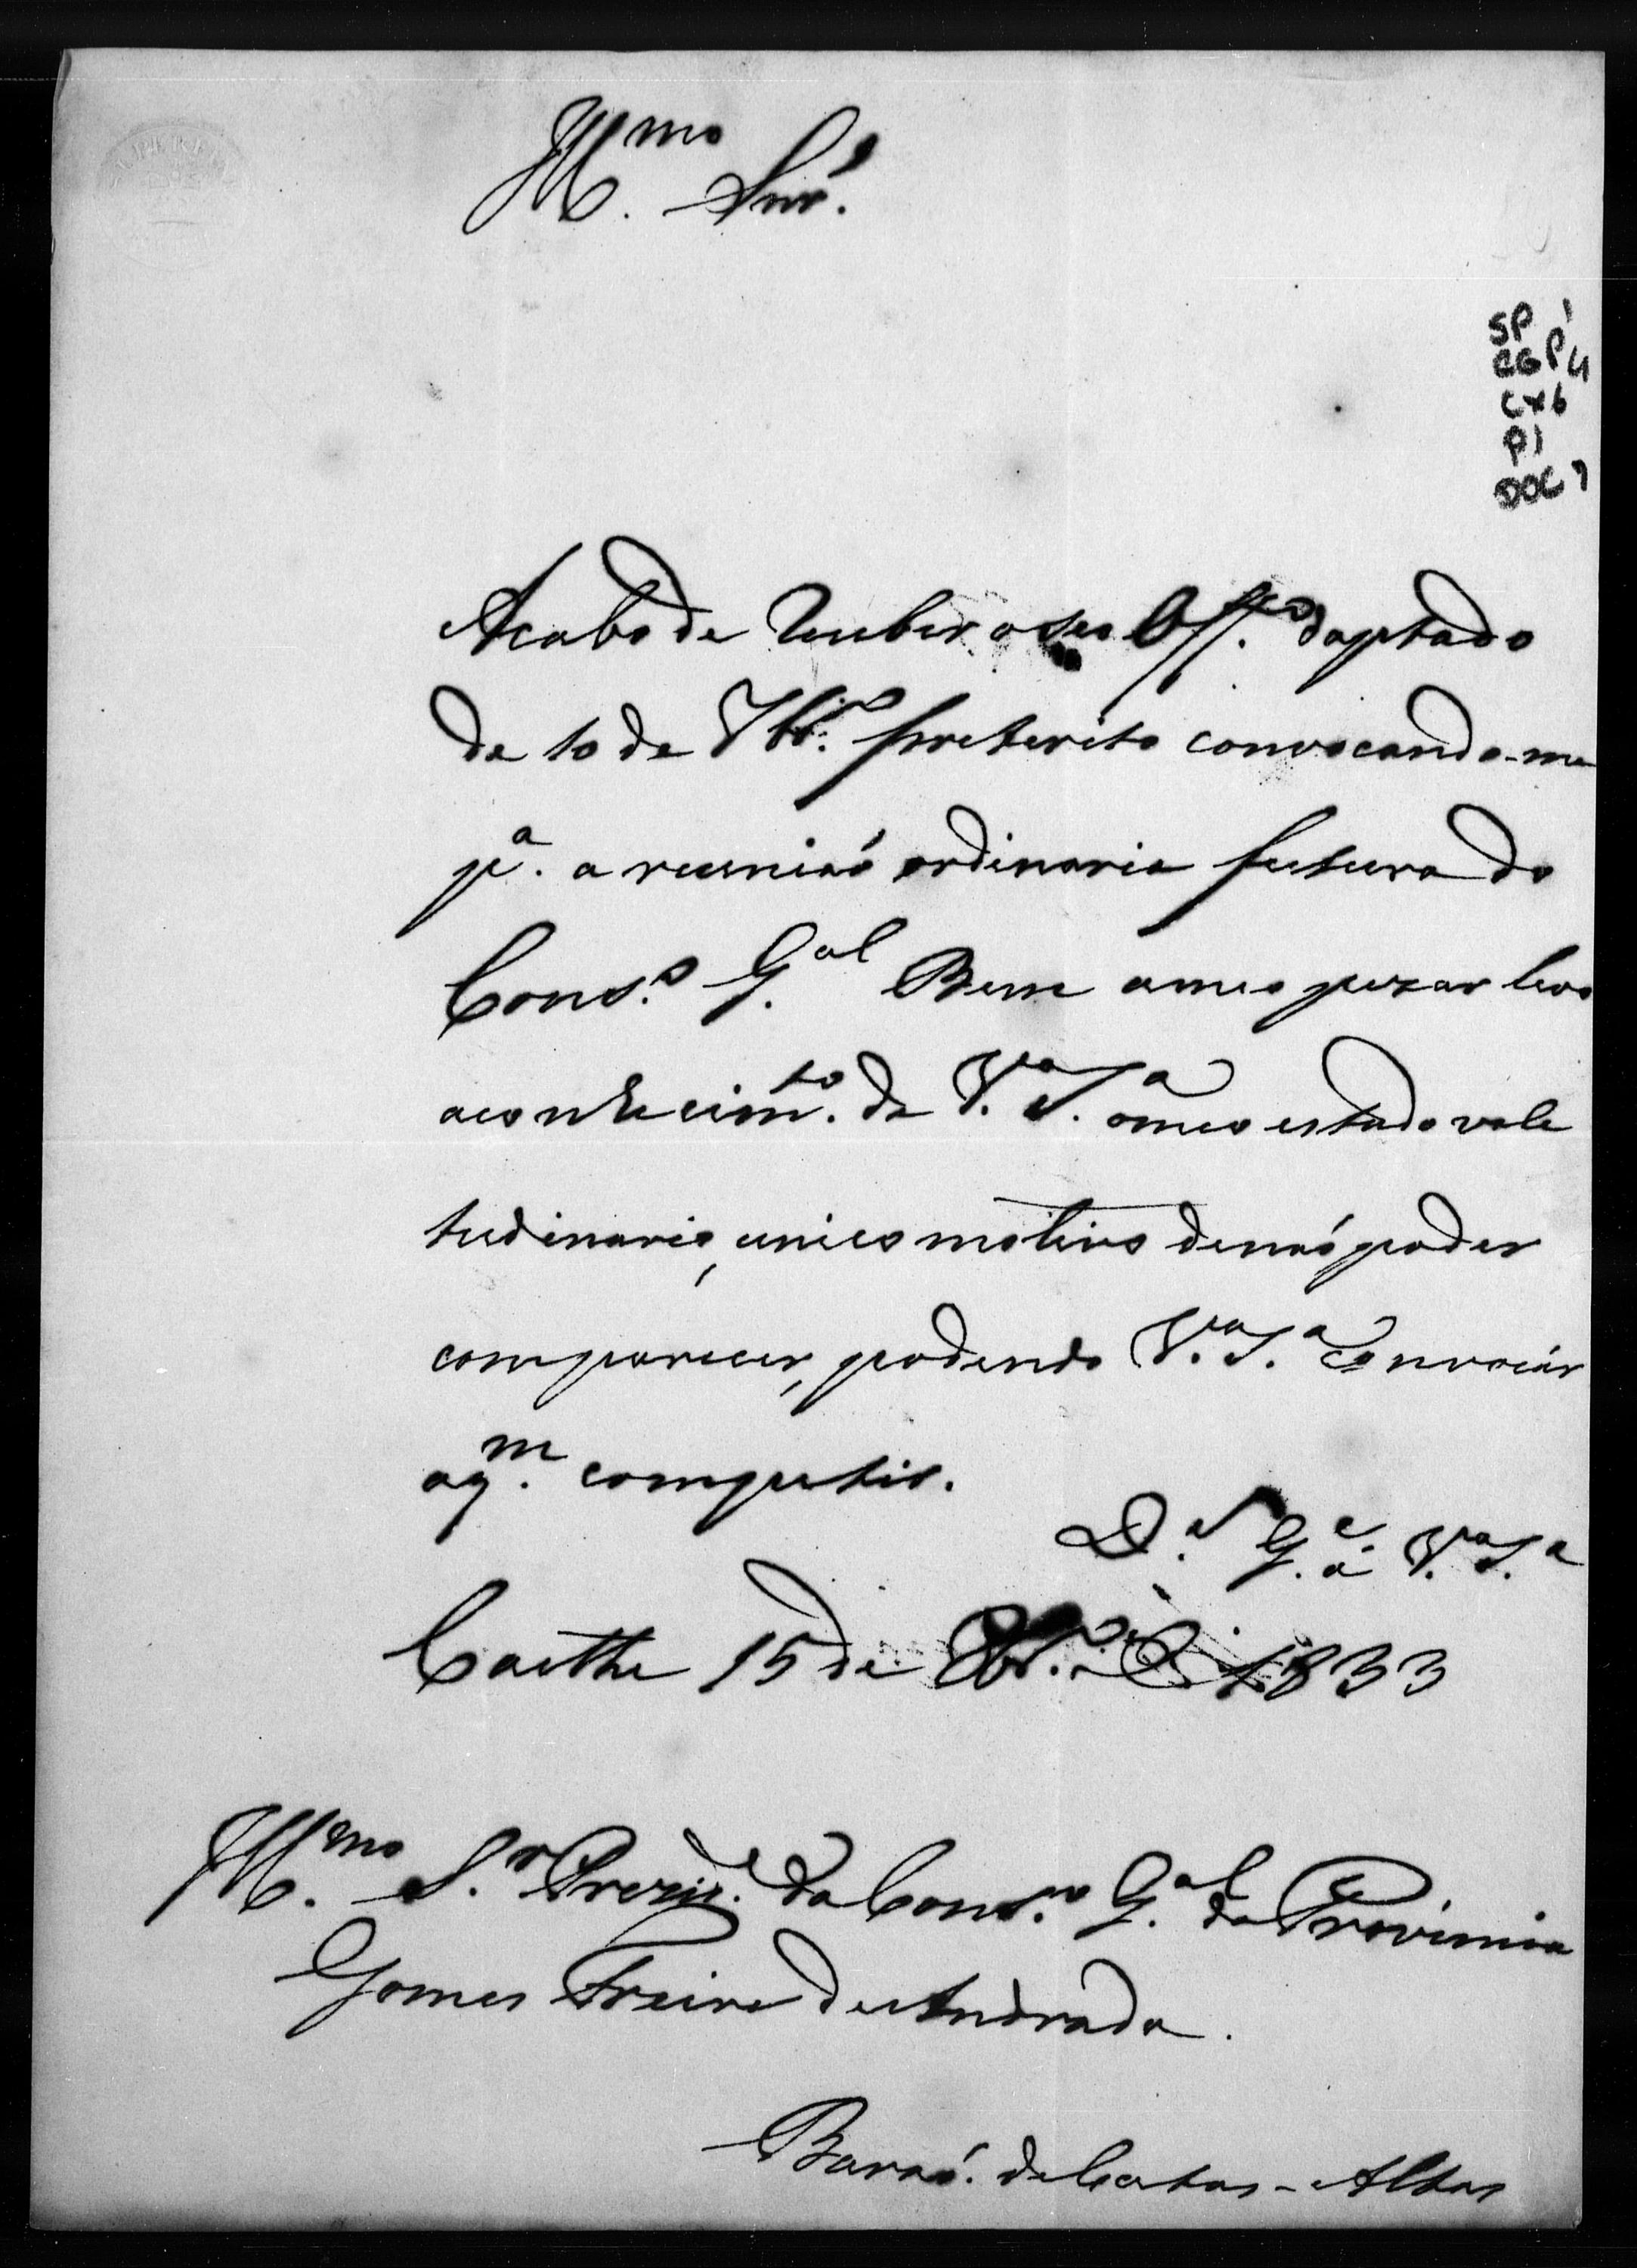 Ill.mo Snr.
SP 1
CGP 4
CX6
P1
DOC 7
Acabo de receber o seo Off.co daptado
de 10 de 7br.o preterito convocando-me
p.a a reunião ordinaria futura do
Cons.o G.al Bem a meo pezar levo
ao conhecim.to de V.a S.a o meo estado vale
tudinario, unico motivo de não poder
comparecer, podendo V.a S.a convocár
a q.m competir.
D.s G.e a V.a S.a
Caethe 15 de 8br.o 1833
Ill.mo S.r Prezid.e do Cons.o G.al da Provincia
Gomes Freire de Andrada.
Barão de Catas-Altas